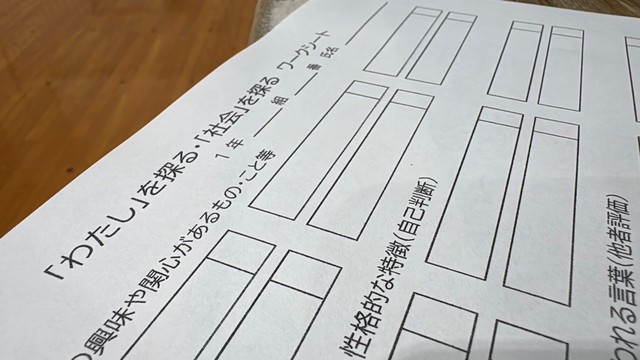 「わたし」を探る・「社会」を探る ワークシート
1年 組 番 氏名
興味や関心があるもの・こと等
性格的な特徴(自己判断)
われる言葉(他者評価)